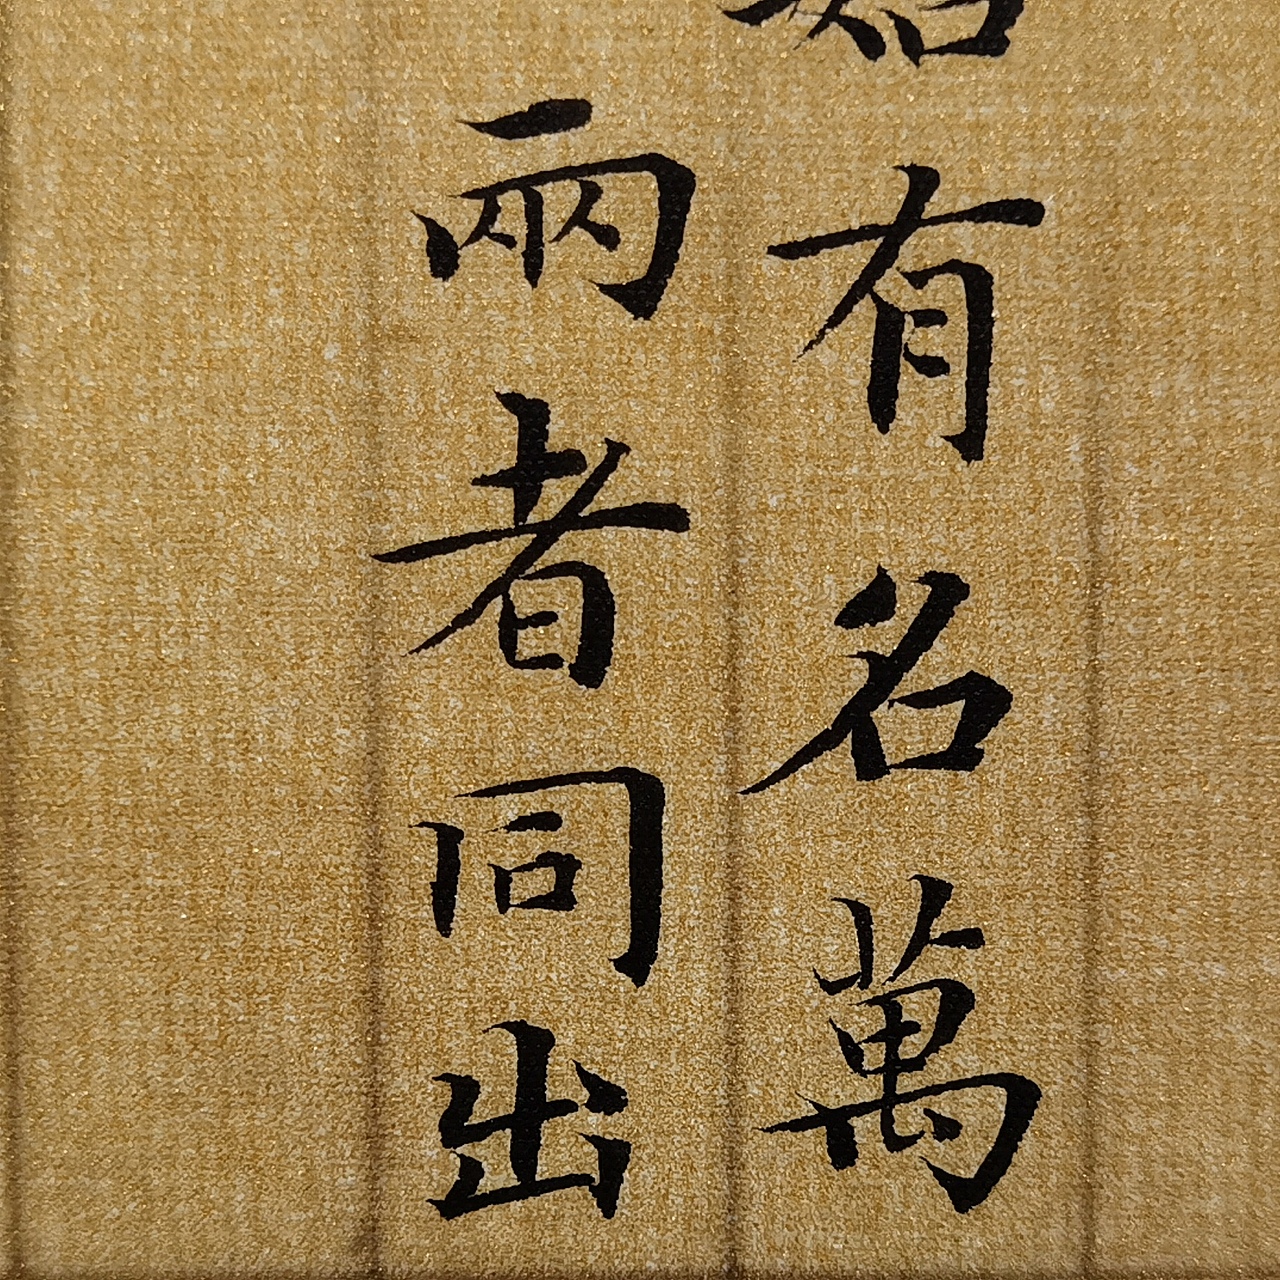 始有名萬
兩者同出